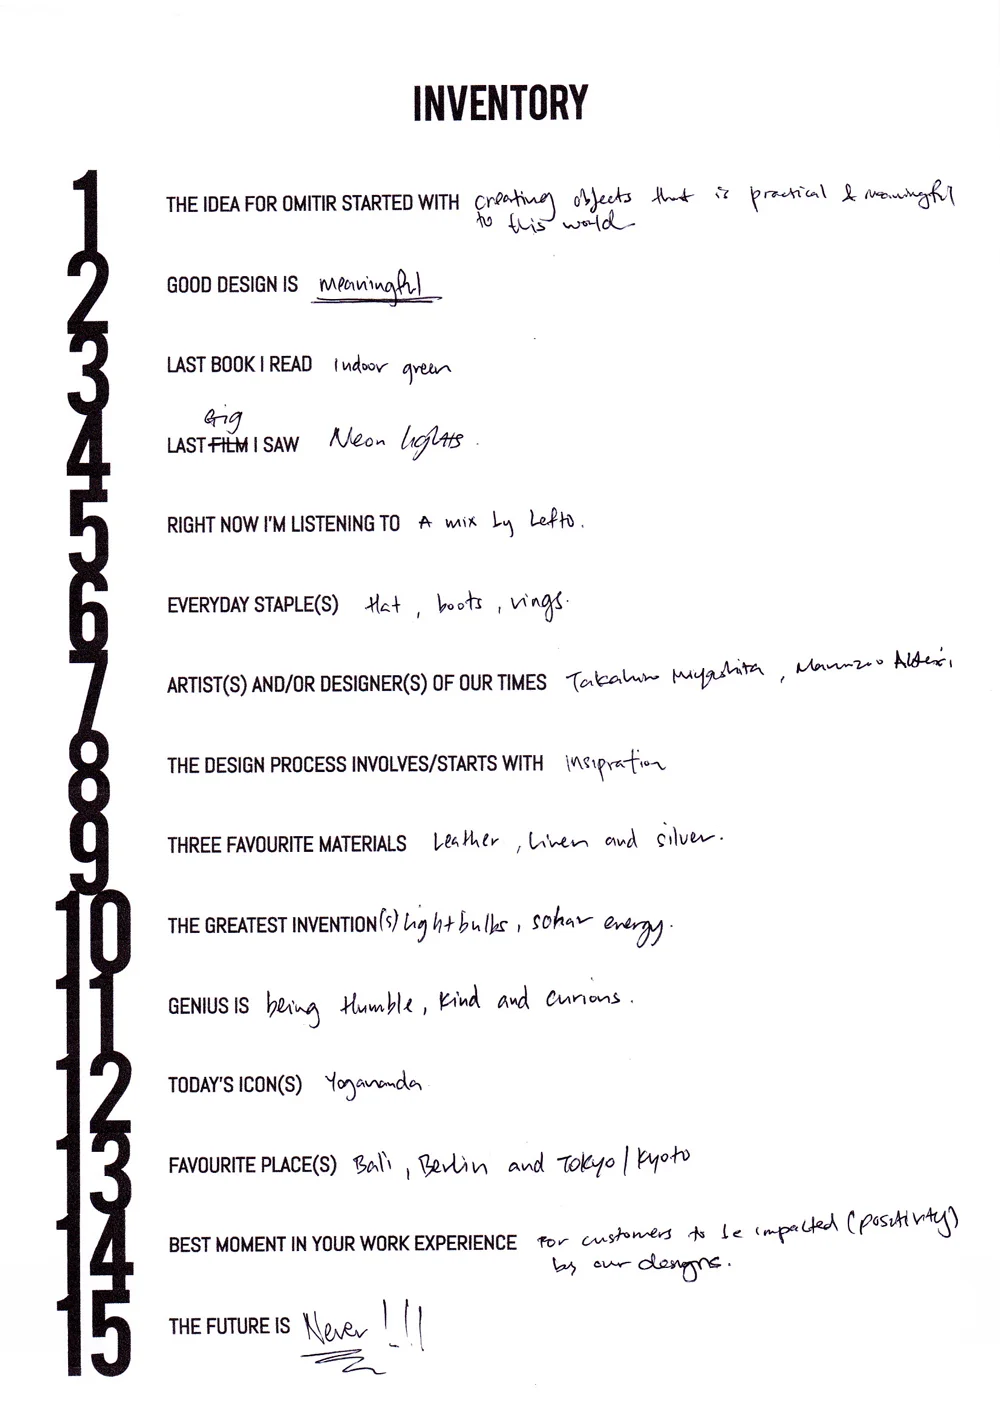 INVENTORY
1 THE IDEA FOR OMITIR STARTED WITH creating objects that is practical & meaningful
to this world
2 GOOD DESIGN IS meaningful
3 LAST BOOK I READ Indoor green
Gig
4 LAST FILM I SAW Neon lights.
5 RIGHT NOW I'M LISTENING TO A mix by Lefto.
6 EVERYDAY STAPLE(S) Hat, boots, rings.
7 ARTIST(S) AND/OR DESIGNER(S) OF OUR TIMES Takahiro Miyashita, Maurizio Altieri.
8 THE DESIGN PROCESS INVOLVES/STARTS WITH insipration
9 THREE FAVOURITE MATERIALS Leather, linen and silver.
10 THE GREATEST INVENTION(s) Lightbulbs, solar energy.
11 GENIUS IS being Humble, kind and curious.
12 TODAY'S ICON(S) Yogananda
13 FAVOURITE PLACE(S) Bali, Berlin and Tokyo/Kyoto
14 BEST MOMENT IN YOUR WORK EXPERIENCE For customers to be impacted (positivity)
by our designs.
15 THE FUTURE IS Never!!!